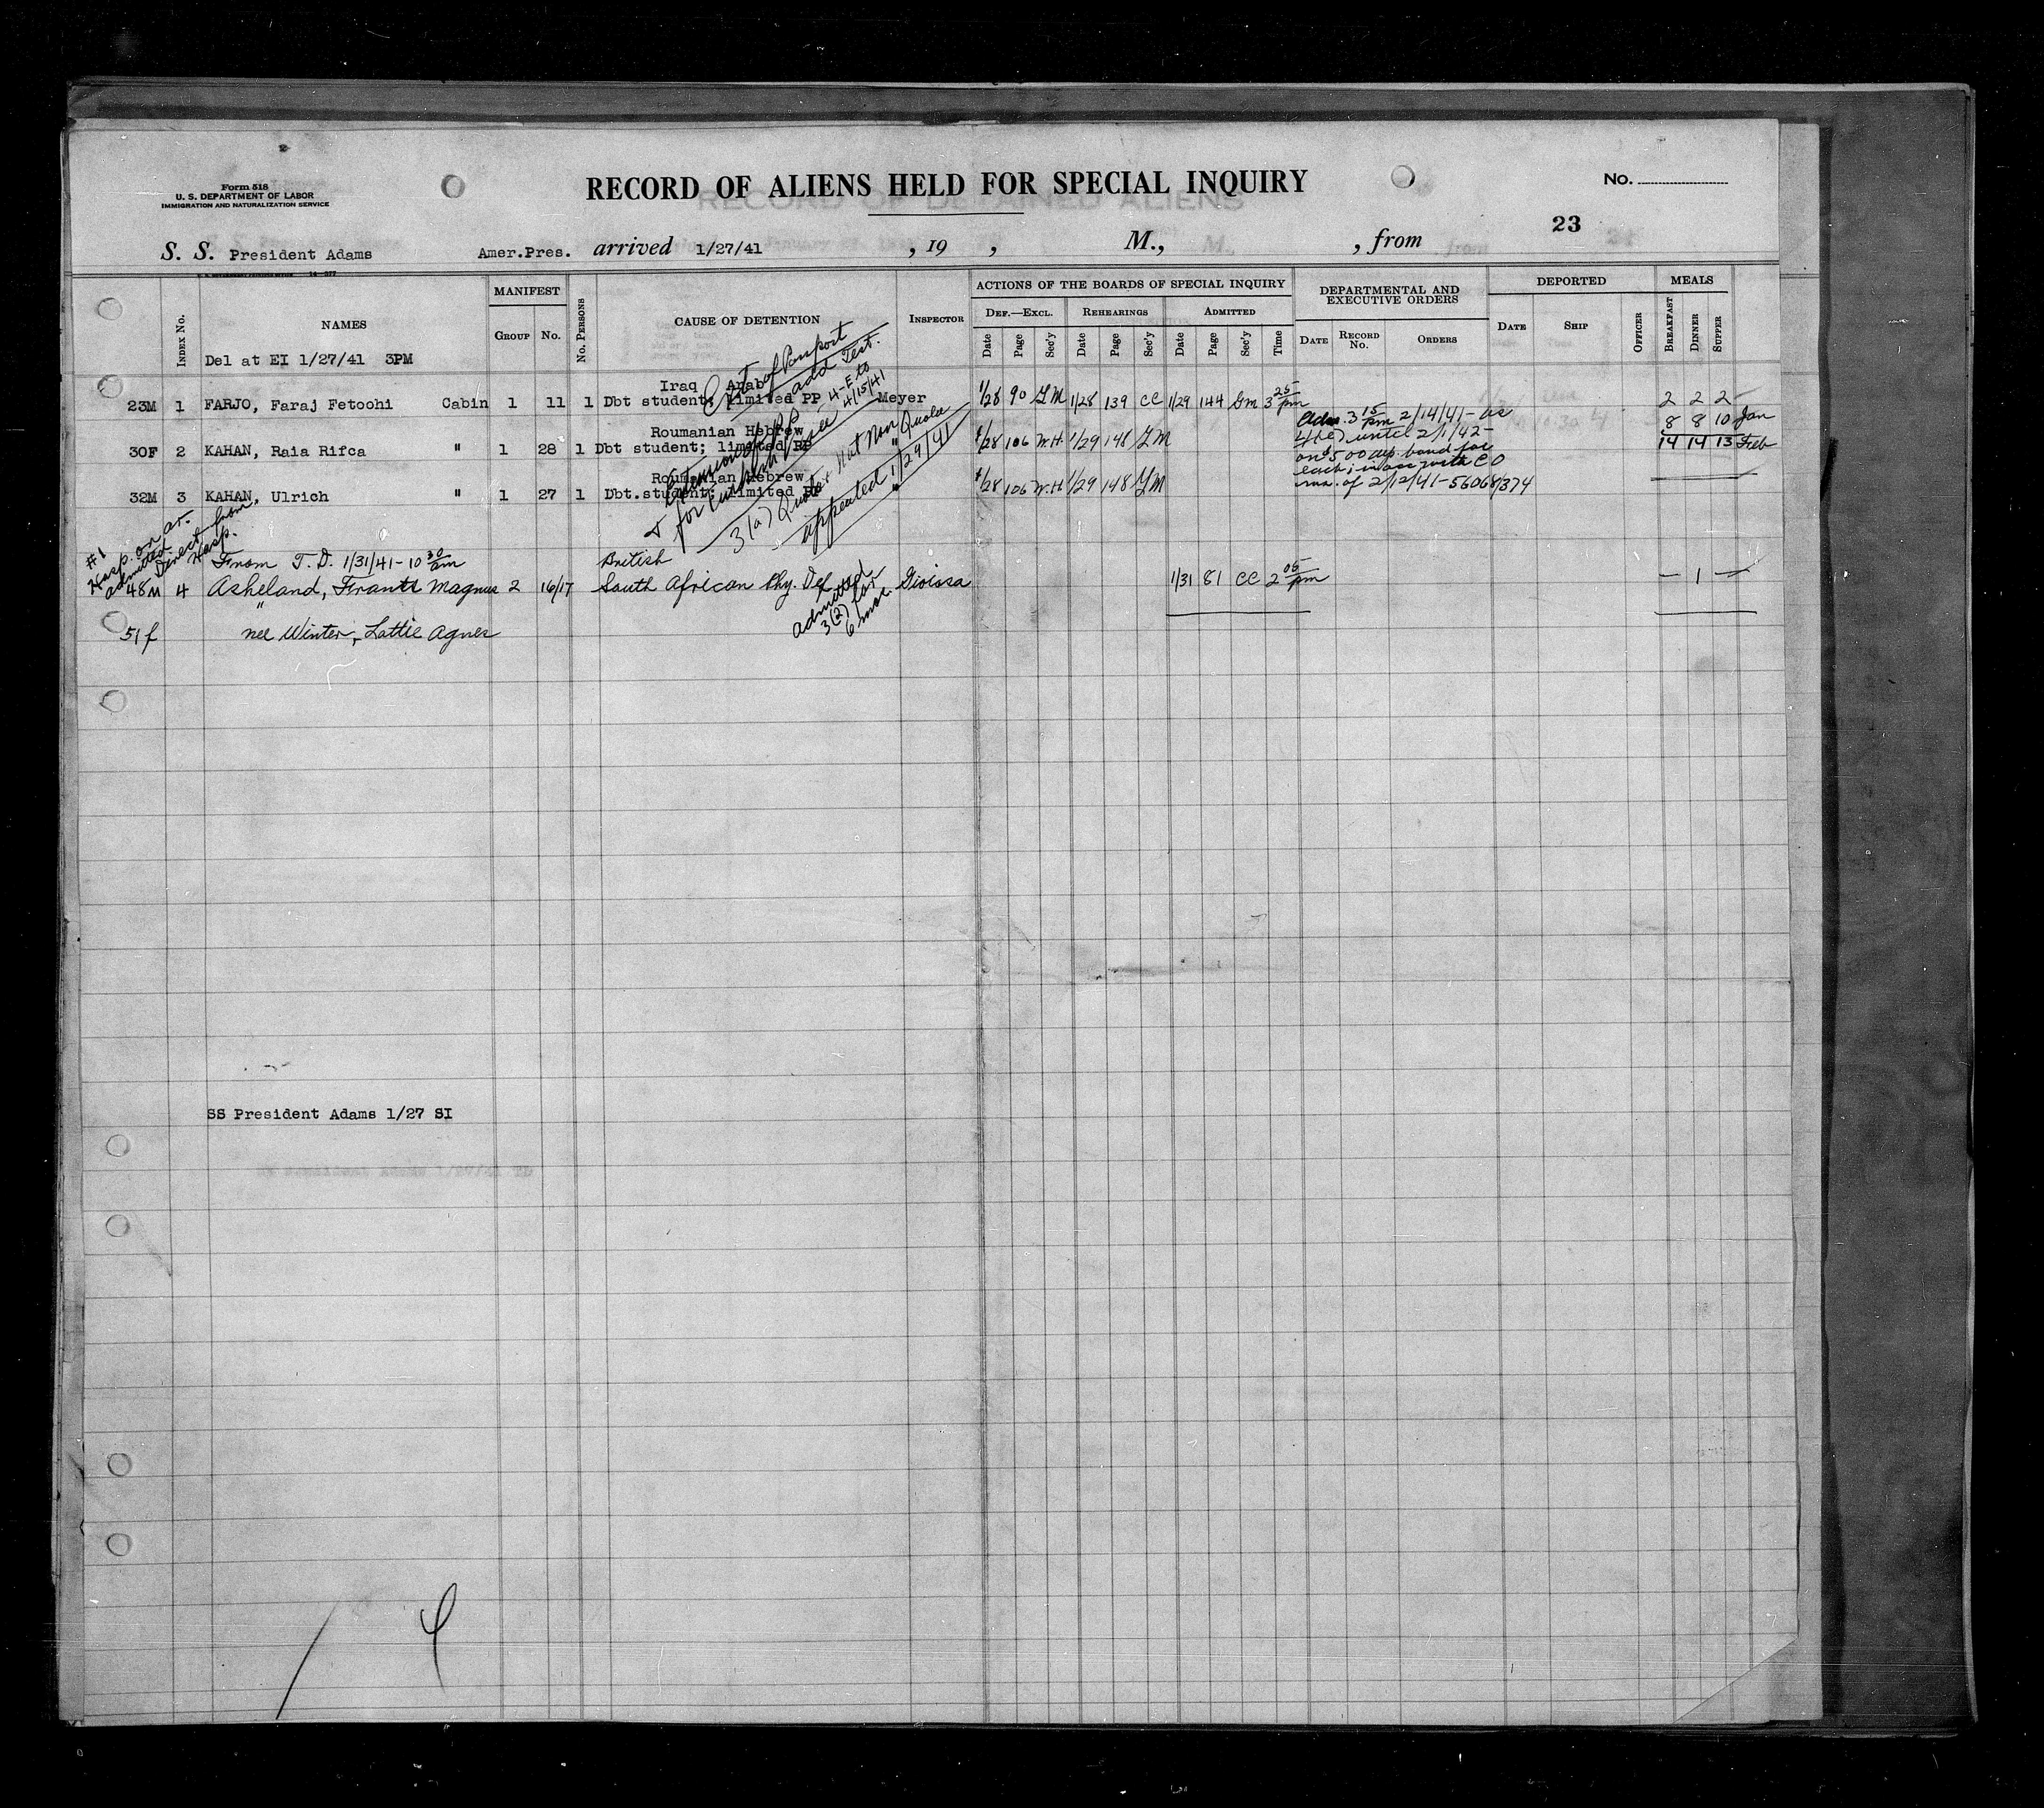 Form 518
U. S. DEPARTMENT OF LABOR
IMMIGRATION AND NATURALIZATION SERVICE
RECORD OF ALIENS HELD FOR SPECIAL INQUIRY
No.
23
S. S. President Adams Amer.Pres. arrived 1/27/41 , 19 , M., , from
INDEX No. NAMES MANIFEST GROUP No. No. PERSONS CAUSE OF DETENTION INSPECTOR
ACTIONS OF THE BOARDS OF SPECIAL INQUIRY
DEF.—EXCL. REHEARINGS ADMITTED
Date Page Sec'y Date Page Sec'y Date Page Sec'y Time
DEPARTMENTAL AND EXECUTIVE ORDERS
DATE RECORD No. ORDERS
DEPORTED
DATE SHIP OFFICER
MEALS
BREAKFAST DINNER SUPPER
Del at EI 1/27/41 3PM
Ext of Passport
add Test.
4-E to
4/15/41
Iraq Arab
23M 1 FARJO, Faraj Fetoohi Cabin 1 11 1 Dbt student; limited PP Meyer 1/28 90 GM 1/28 139 CC 1/29 144 GM 3 25 pm 2 2 2
Roumanian Hebrew
30F 2 KAHAN, Raia Rifca " 1 28 1 Dbt student; limited PP " 1/28 106 W.H. 1/29 148 GM
Roumanian Hebrew
32M 3 KAHAN, Ulrich " 1 27 1 Dbt.student; limited PP " 1/28 106 W.H 1/29 148 GM
Extension of PP
& for
3(a) Quota + Nat Non Quota
appealed 1/29/41
Adm. 3 15 pm 2/14/41 - as
4(e) until 2/1/42 -
on 500 dep. bond for
each; in acc with CO
of 2/12/41 - 56068/374
8 8 10 Jan
14 14 13 Feb
#1
Hosp. on ar.
admitted
Direct from
Hosp.
From T. D. 1/31/41 - 10 30 am
British
48M 4 Asheland, Frantz Magnus 2 16/17 South African Phy. Def Gioiosa 1/31 81 CC 2 05 pm - 1 -
admitted
3(2) for
6 mos.
"
51f nee Winter, Lottie Agnes
SS President Adams 1/27 SI
/ 4